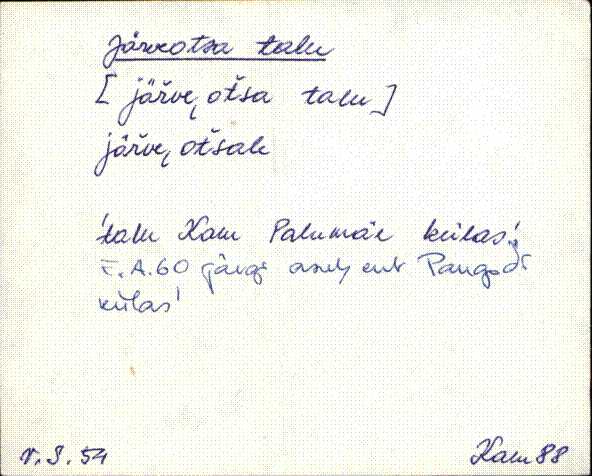 Järveotsa talu
[järve otsa talu]
järve otsale
'talu Kam Palumäe külas;
E.A.60 järgi asus ent Pangodi
külas'
V.S. 54
Kam 88